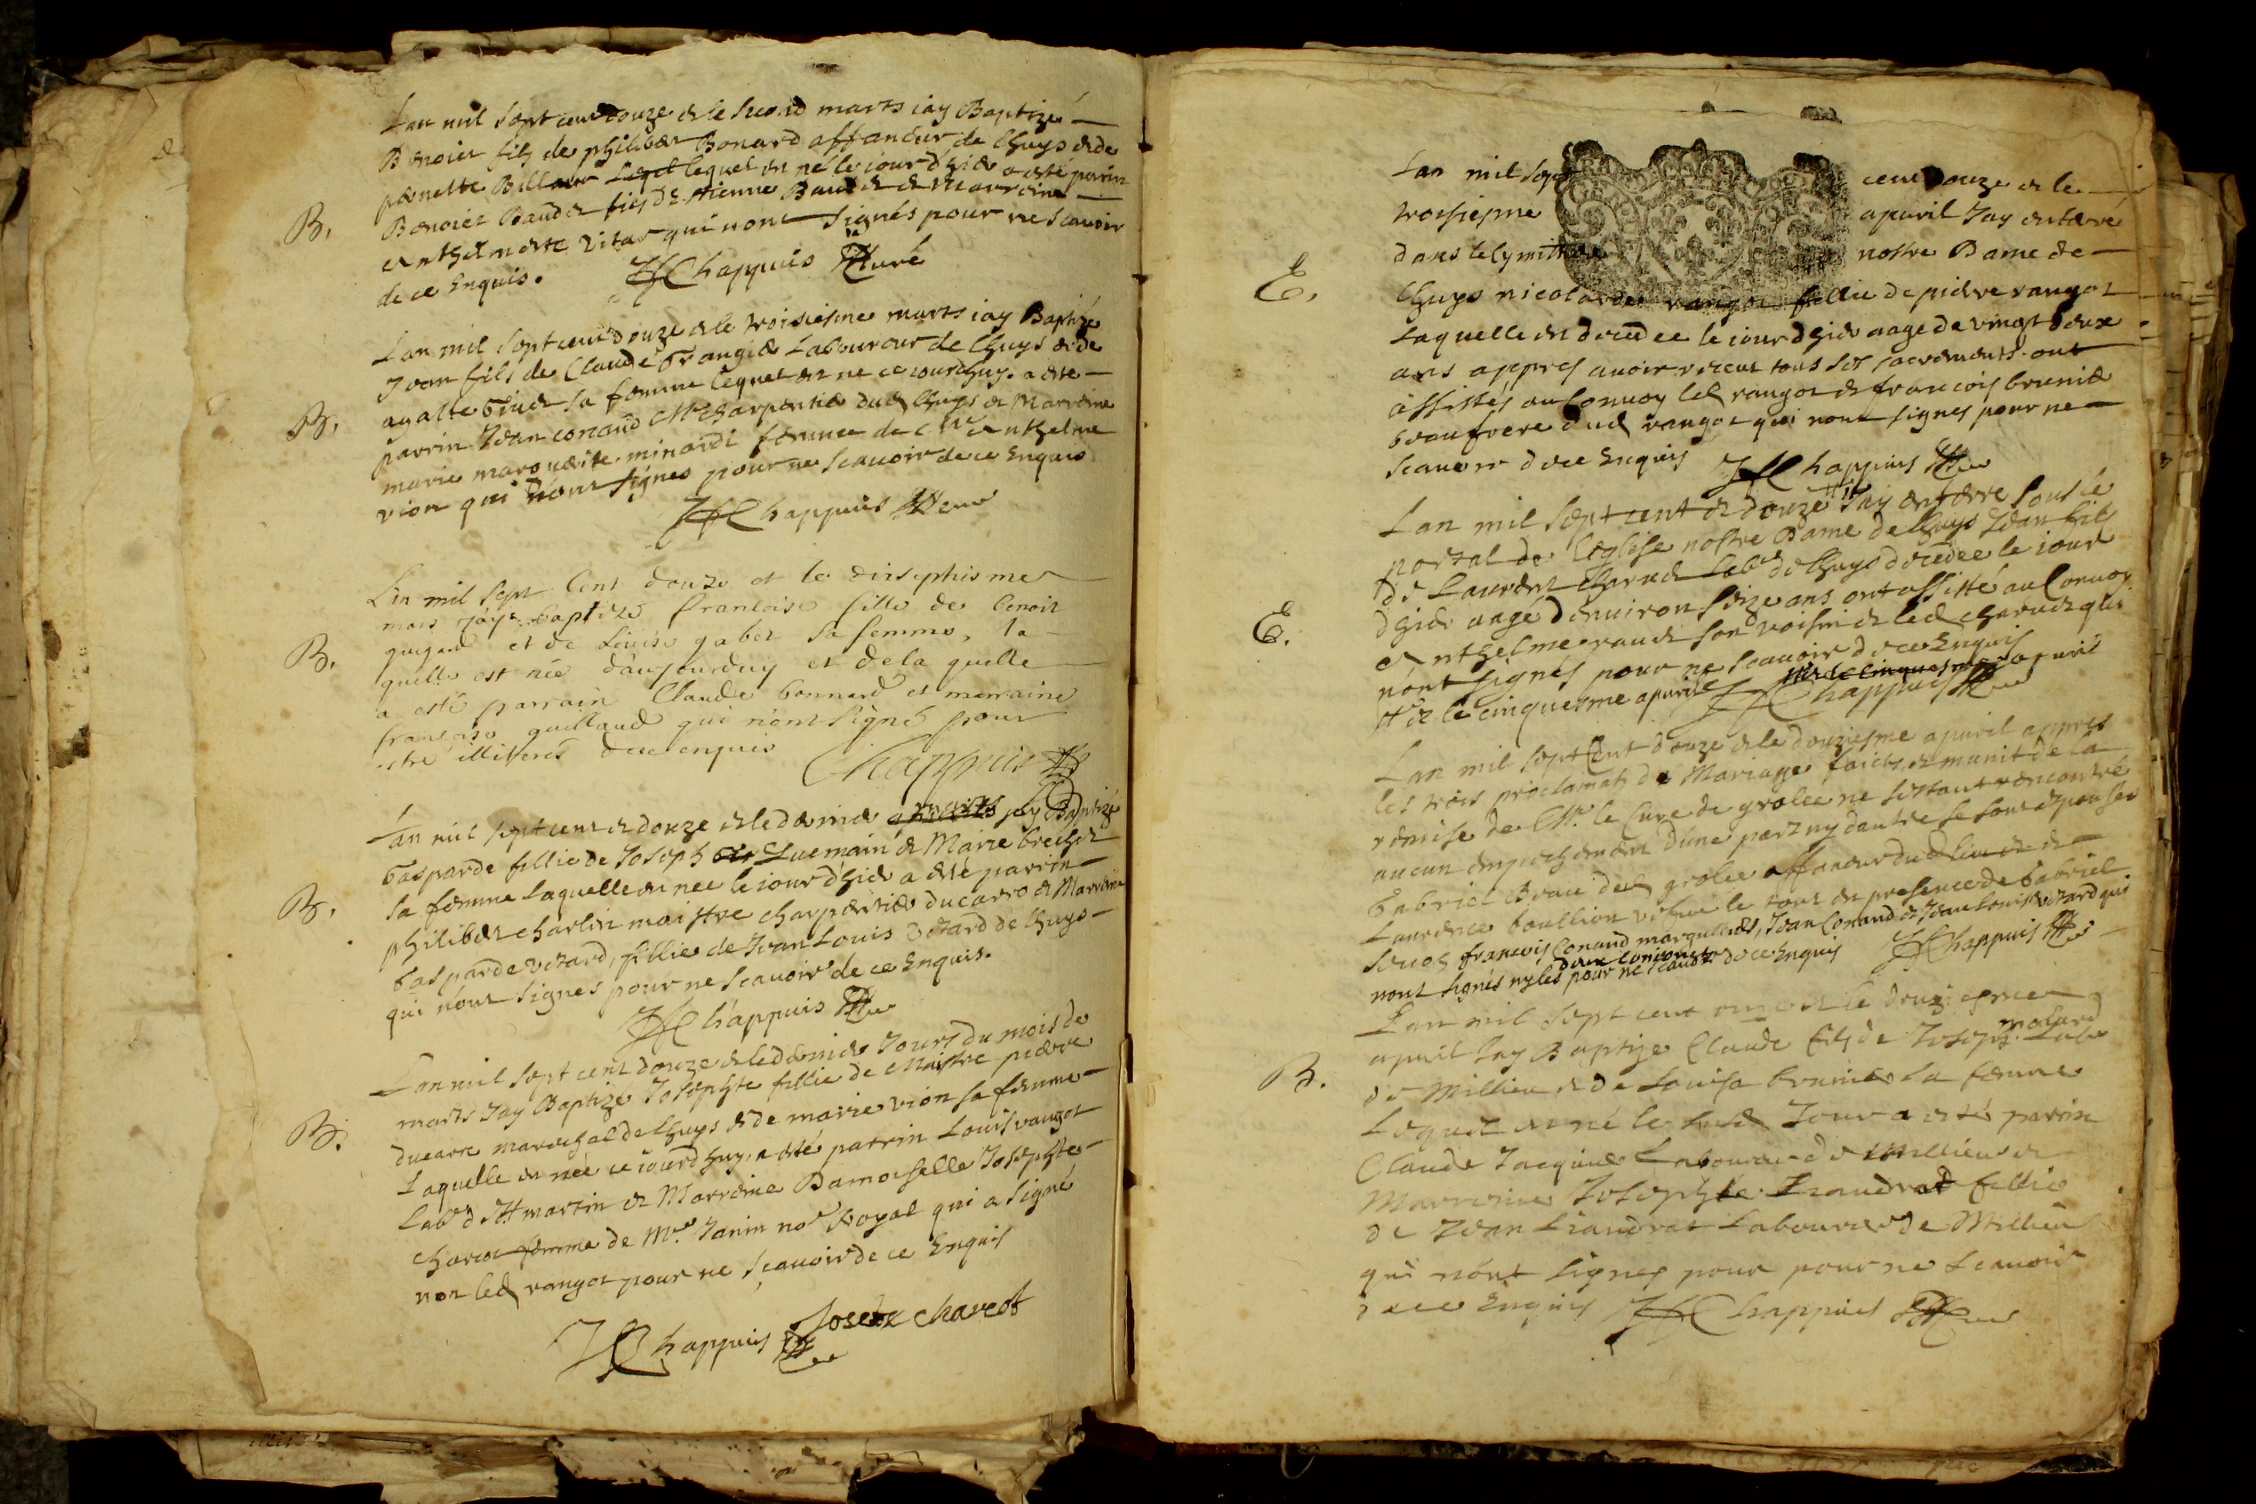 Lan mil sept cent douze & le second marts jay Baptizé
Benoict filz de philibert Bonard affaneur de Lhuys & de
pernette Billaur lequel est né le jourdhier a esté parrin
B. Benoict Baudet filz dEstienne Baudet & Marreine
Anthelmette vitar qui nont signés pour ne scavoir
de ce Enquis. Chappuis Curé
Lan mil sept cent douze & le troisiesme marts jay Baptizé
Jean filz de Claude Laboureur de Lhuys & de
B. sa femme lequel est ne ce jourdhuy a esté
parrin Jean conand Mre charpentier dud Lhuys & Marreine
marie marguerite minardt femme de Mre Anthelme
vion qui nont signes pour ne scavoir de ce Enquis
Chappuis
Lan mil sept Cent douze et le dixseptiesme
mars jay baptizé francoise fille de benoit
B. guigard et de Louise gabet sa femme, la
quelle est née daujourduy et de la quelle
a esté parrain Claude bonnard et marraine
francoise guillaud qui nont signé pour
estre illiterés de ce enquis
Chappuis
Lan mil sept cent & douze & le dernier marts jay Baptizé
Gasparde fillie de Joseph Luemain & Marie brechet
B. sa femme laquelle est nee le jourdhier a esté parrin
philibert charlin maistre charpentier ducarro & Marreine
Gasparde vezard, fillie de Jean Louis vezard de Lhuys
qui nont signes pour ne scavoir de ce Enquis.
Chappuis
Lan mil sept cent douze & le dernier Jours du mois de
marts Jay Baptizé Josephte fillie de Maistre pierre
B. ducarre mareschal de Lhuys & de marie vion sa femme
Laquelle est née ce jourdhuy, a esté parrin Louis rangot
Labr de St martin & Marreine Damoiselle Josephte
charcot femme de Mre Janin nore Royal qui a signé
non led rangot pour ne scavoir de ce Enquis
Josete charcot
Chappuis
Lan mil sept cent douze & le
troisiesme apuril Jay enterré
dans le cymitiere nostre Dame de
E. Lhuys nicolarde rangot fillie de pierre rangot
Laquelle est decedee le jourdhier aage de vingt deux
ans appres avoir receut tous ses sacrements. ont
assistés au Convoy led rangot & francois brunier
beaufrere dud rangot qui nont signes pour ne
scavoir de ce Enquis Chappuis
Lan mil sept cent & douze Jay enterre sous le
portal de Leglise nostre Dame de Lhuys Jean filz
de Laurent charvet Labr de Lhuys decedee le jour
E. dhier aagé denviron seize ans ont assisté au Convoy
Anthelme ravet son voisin & led charvet qui
nont signés pour ne scavoir de ce Enquis
& le cinquesme apuril Chappuis
Lan mil sept Cent douze & le douziesme apuril appres
les trois proclamats de Mariage faicts & munit de la
remise de Mr. le Cure de grolee ne sestant rencontré
aucun empechement dune part ny dautre se sont espouses
Gabriel Braci de grolee affaneur dud lieu & de
Laurence boullion vefue le tout en presence de Gabriel
francois Conand marguillier, Jean Conand & Jean Louis vezard qui
nont signés ny les deux conjoincts pour ne scavoir de ce Enquis Chappuis
Lan mil sept cent & le douziesme
apuril Jay Baptize Claude filz de Joseph molard Labr
B. de Millieu & de Louise brunier sa femme
Lequel est né le susd Jour a esté parrin
Claude Jacquier Laboureur de Millieu &
Marreine Josephte Liaudrat fillie
de Jean Liaudrat Laboureur de Millieu
qui nont signes pour pour ne scavoir
de ce Enquis Chappuis